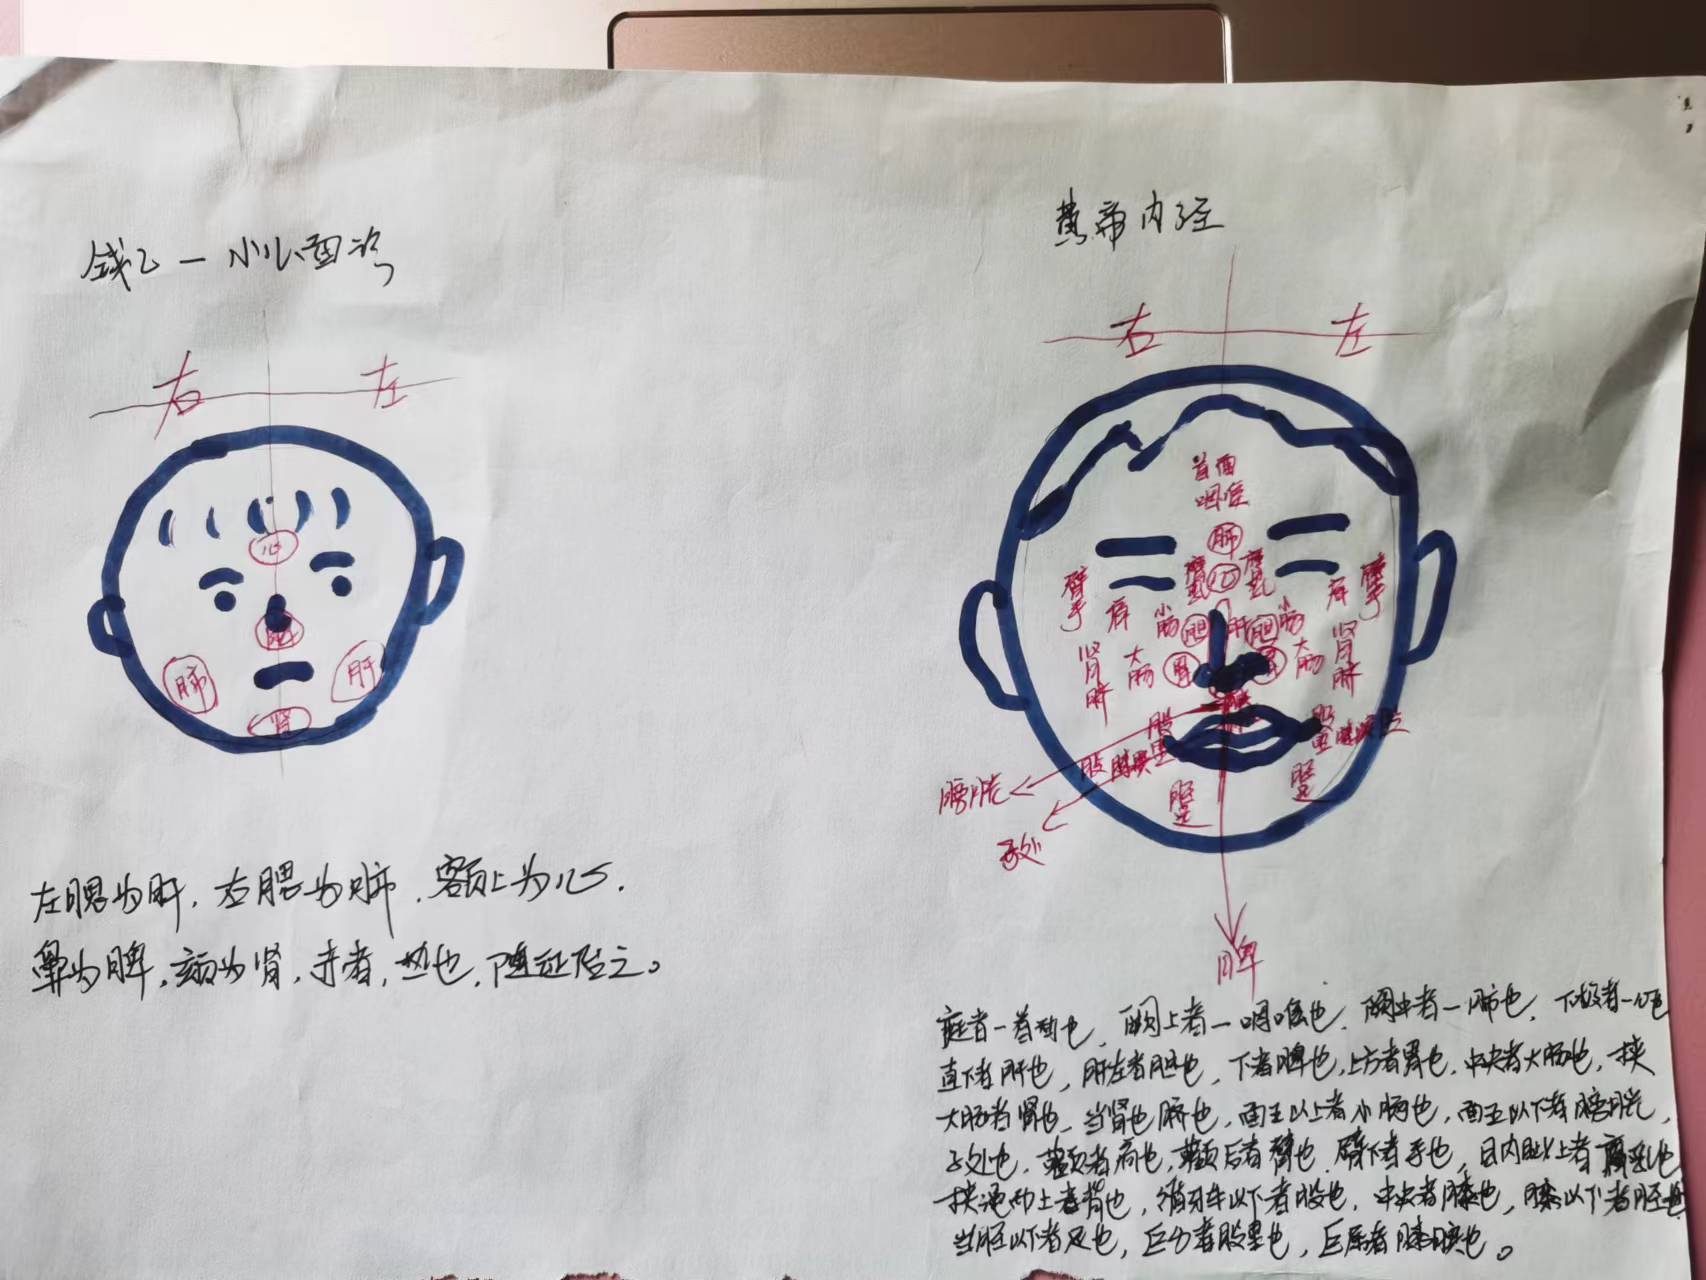 钱乙一小儿面诊
右 左
心
脾
肺 肝
肾
左腮为肝，右腮为肺，额上为心，
鼻为脾，颏为肾，赤者，热也，随证治之。
黄帝内经
右 左
首面
咽喉
肺
膺乳 心 膺乳
臂手 肩 小肠 胆 肝 胆 小肠 肩 臂手
肾脐 大肠 胃 胃 大肠 肾脐
股里 股里
股 膝膑
膀胱
子处
胫足 胫足
脾
庭者一首面也，阙上者一咽喉也，阙中者一肺也，下极者一心也
直下者肝也，肝左者胆也，下者脾也，上方者胃也，中央者大肠也，挟
大肠者肾也，当肾也脐也，面王以上者小肠也，面王以下者膀胱，
子处也，颧者肩也，颧后者臂也，臂下者手也，目内眦上者膺乳也
挟绳而上者背也，循牙车以下者股也，中央者膝也，膝以下者胫也
当胫以下者足也，巨分者股里也，巨屈者膝膑也。